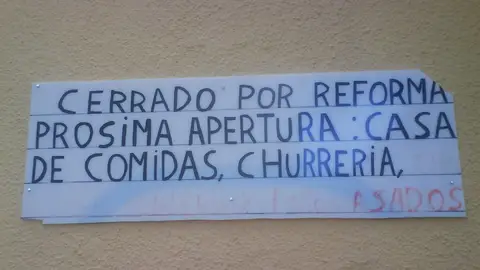 CERRADO POR REFORMA
PROSIMA APERTURA : CASA
DE COMIDAS, CHURRERIA,
ASADOS